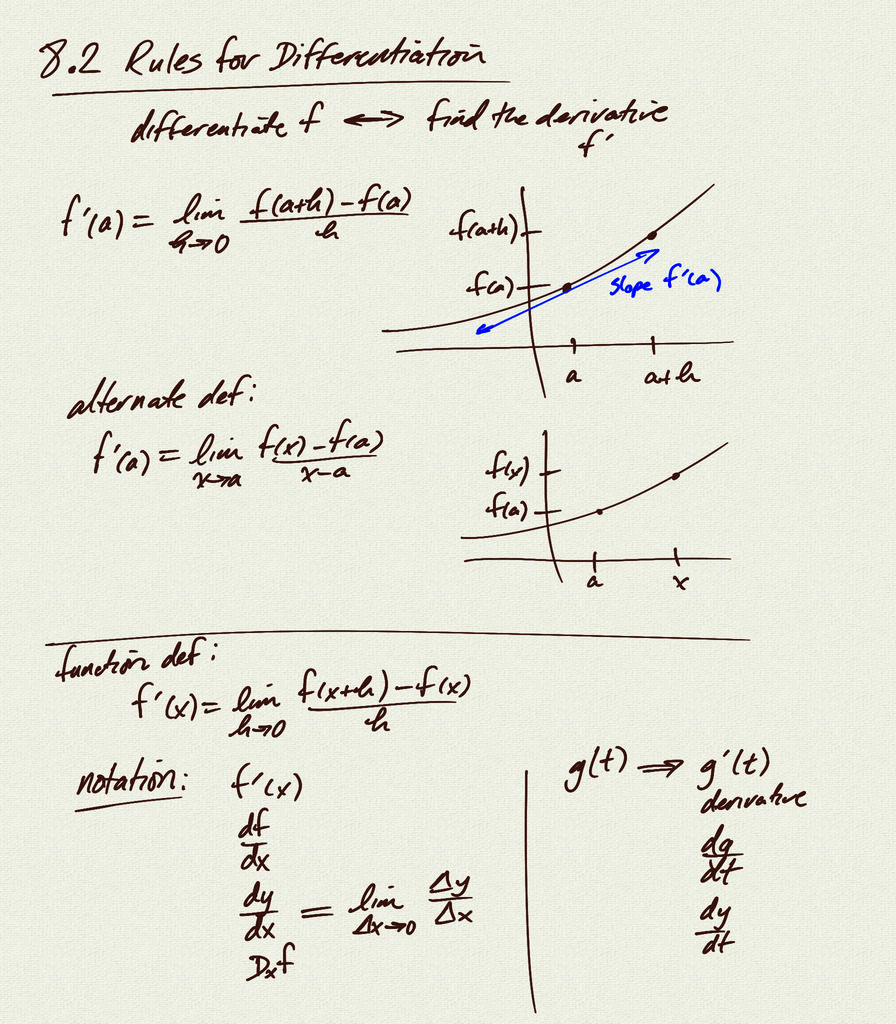 8.2 Rules for Differentiation
differentiate f ⟷ find the derivative
f'
f'(a) = lim h→0 (f(a+h) − f(a))/h
f(a+h)
f(a)
slope f'(a)
a a+h
alternate def:
f'(a) = lim x→a (f(x) − f(a))/(x−a)
f(x)
f(a)
a x
function def:
f'(x) = lim h→0 (f(x+h) − f(x))/h
notation: f'(x)
df/dx
dy/dx = lim Δx→0 Δy/Δx
Dₓf
g(t) ⟹ g'(t)
derivative
dg/dt
dy/dt